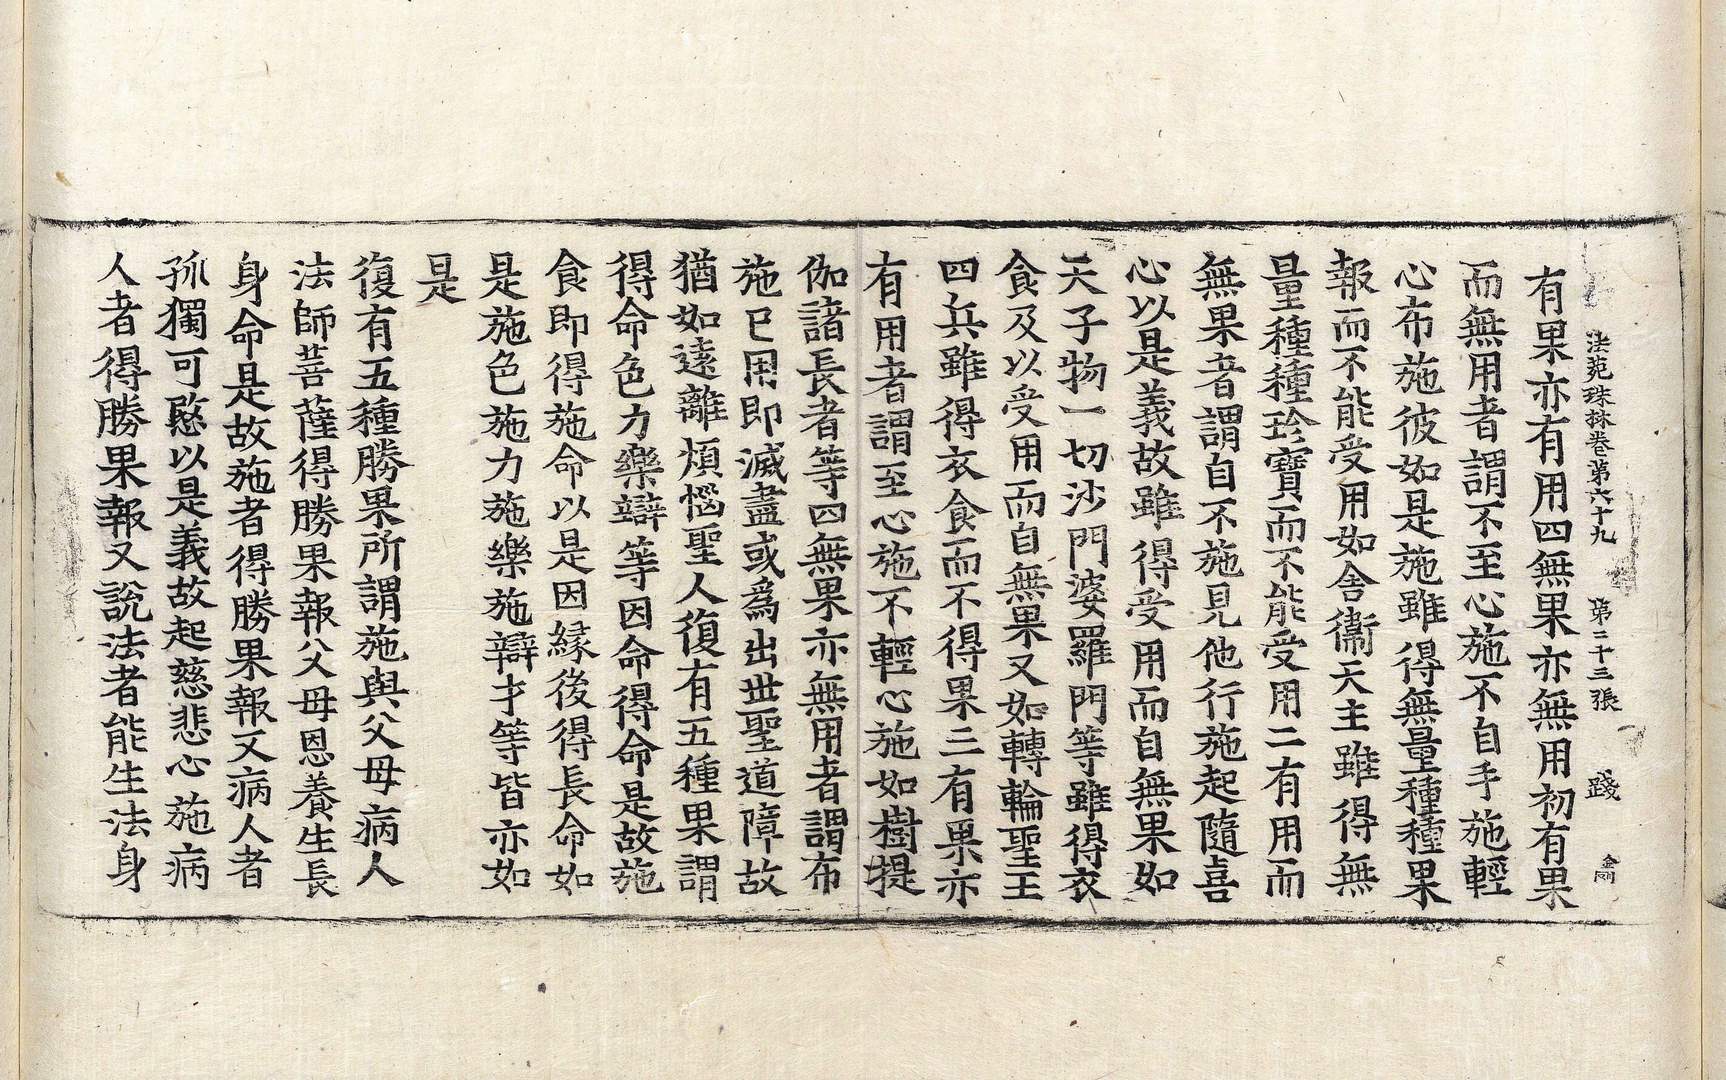 法苑珠林卷第六十九 第二十三張 踐
有果亦有用四無果亦無用初有果
而無用者謂不至心施不自手施輕
心布施彼如是施雖得無量種種果
報而不能受用如舍衞天主雖得無
量種種珍寶而不能受用二有用而
無果者謂自不施見他行施起隨喜
心以是義故雖得受用而自無果如
天子物一切沙門婆羅門等雖得衣
食及以受用而自無果又如轉輪聖王
四兵雖得衣食而不得果三有果亦
有用者謂至心施不輕心施如樹提
伽諸長者等四無果亦無用者謂布
施已用即滅盡或爲出世聖道障故
猶如遠離煩惱聖人復有五種果謂
得命色力樂辯等因命得命是故施
食即得施命以是因縁後得長命如
是施色施力施樂施辯才等皆亦如
是
復有五種勝果所謂施與父母病人
法師菩薩得勝果報父母恩養生長
身命是故施者得勝果報又病人者
孤獨可愍以是義故起慈悲心施病
人者得勝果報又說法者能生法身